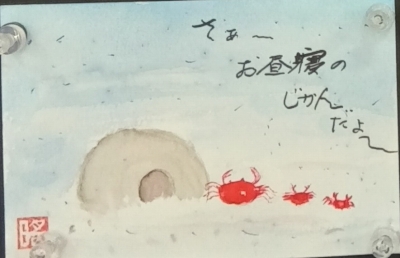 さぁ〜
お昼寝の
じかん
だよ〜